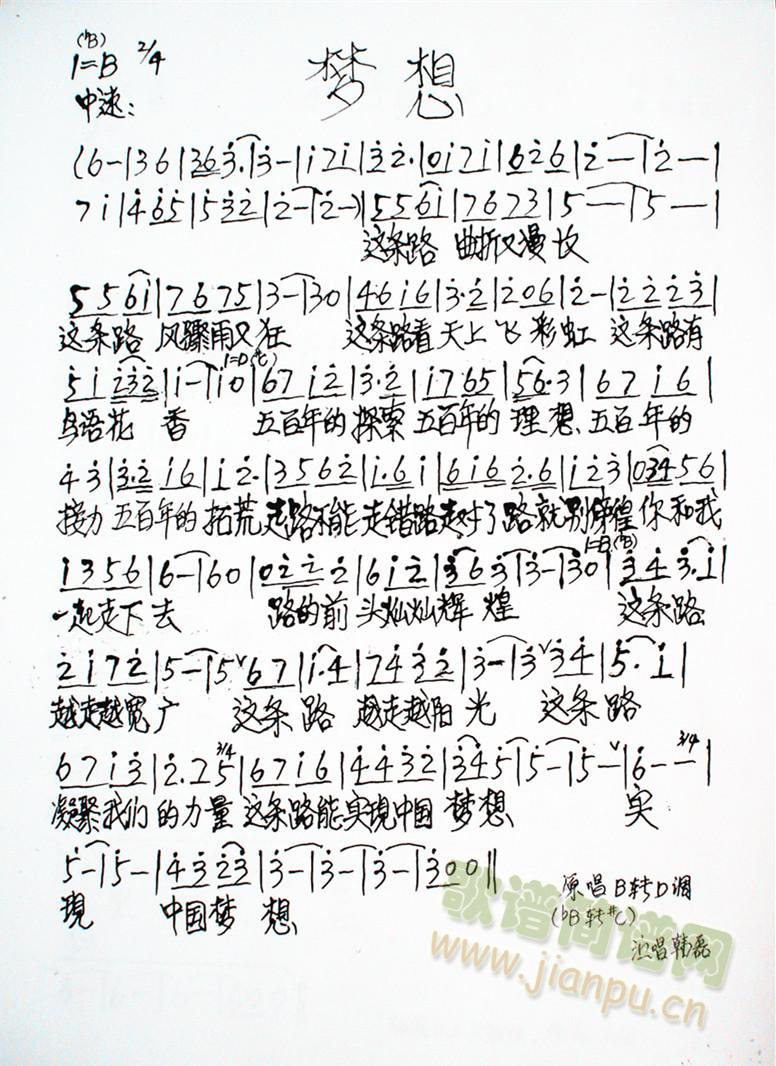 (♭B)
1=B 2/4
梦想
中速:
(6-|36|363.|3-|i7i|32.|0i7i|626|2-|2-|
7i|465|532|2-|2-)|556i|7673|5-|5-|
这条路 曲折又漫长
556i|7675|3-|30|46i6|3.2|206|2-|2223|
这条路 风骤雨又狂 这条路看天上飞彩虹 这条路有
1=D(#C)
5i232|i-|i0|67i2|3.2|i765|56.3|67i6|
鸟语花 香 五百年的探索 五百年的 理想 五百年的
43|3.2i6|i2.|3562|i.6i|6i62.6|i23|03456|
接力 五百年的 拓荒 走路不能 走错路走对了路就别彷徨 你和我
1=B(♭B)
i356|6-|60|0222|6i2|363|3-|30|343.i|
一起走下去 路的前头灿灿辉煌 这条路
2i72|5-|5∨67|i.4|7432|3-|3∨34|5.i|
越走越宽广 这条路 越走越阳光 这条路
67i3|2.25|67i6|4432|345|5-|5-∨|6--|
3/4 3/4
凝聚我们的力量 这条路能实现中国 梦想 实
5-|5-|4323|3-|3-|3-|300‖
现 中国梦 想
原唱B转D调
(♭B转#C)
演唱韩磊
歌谱简谱网
www.jianpu.cn